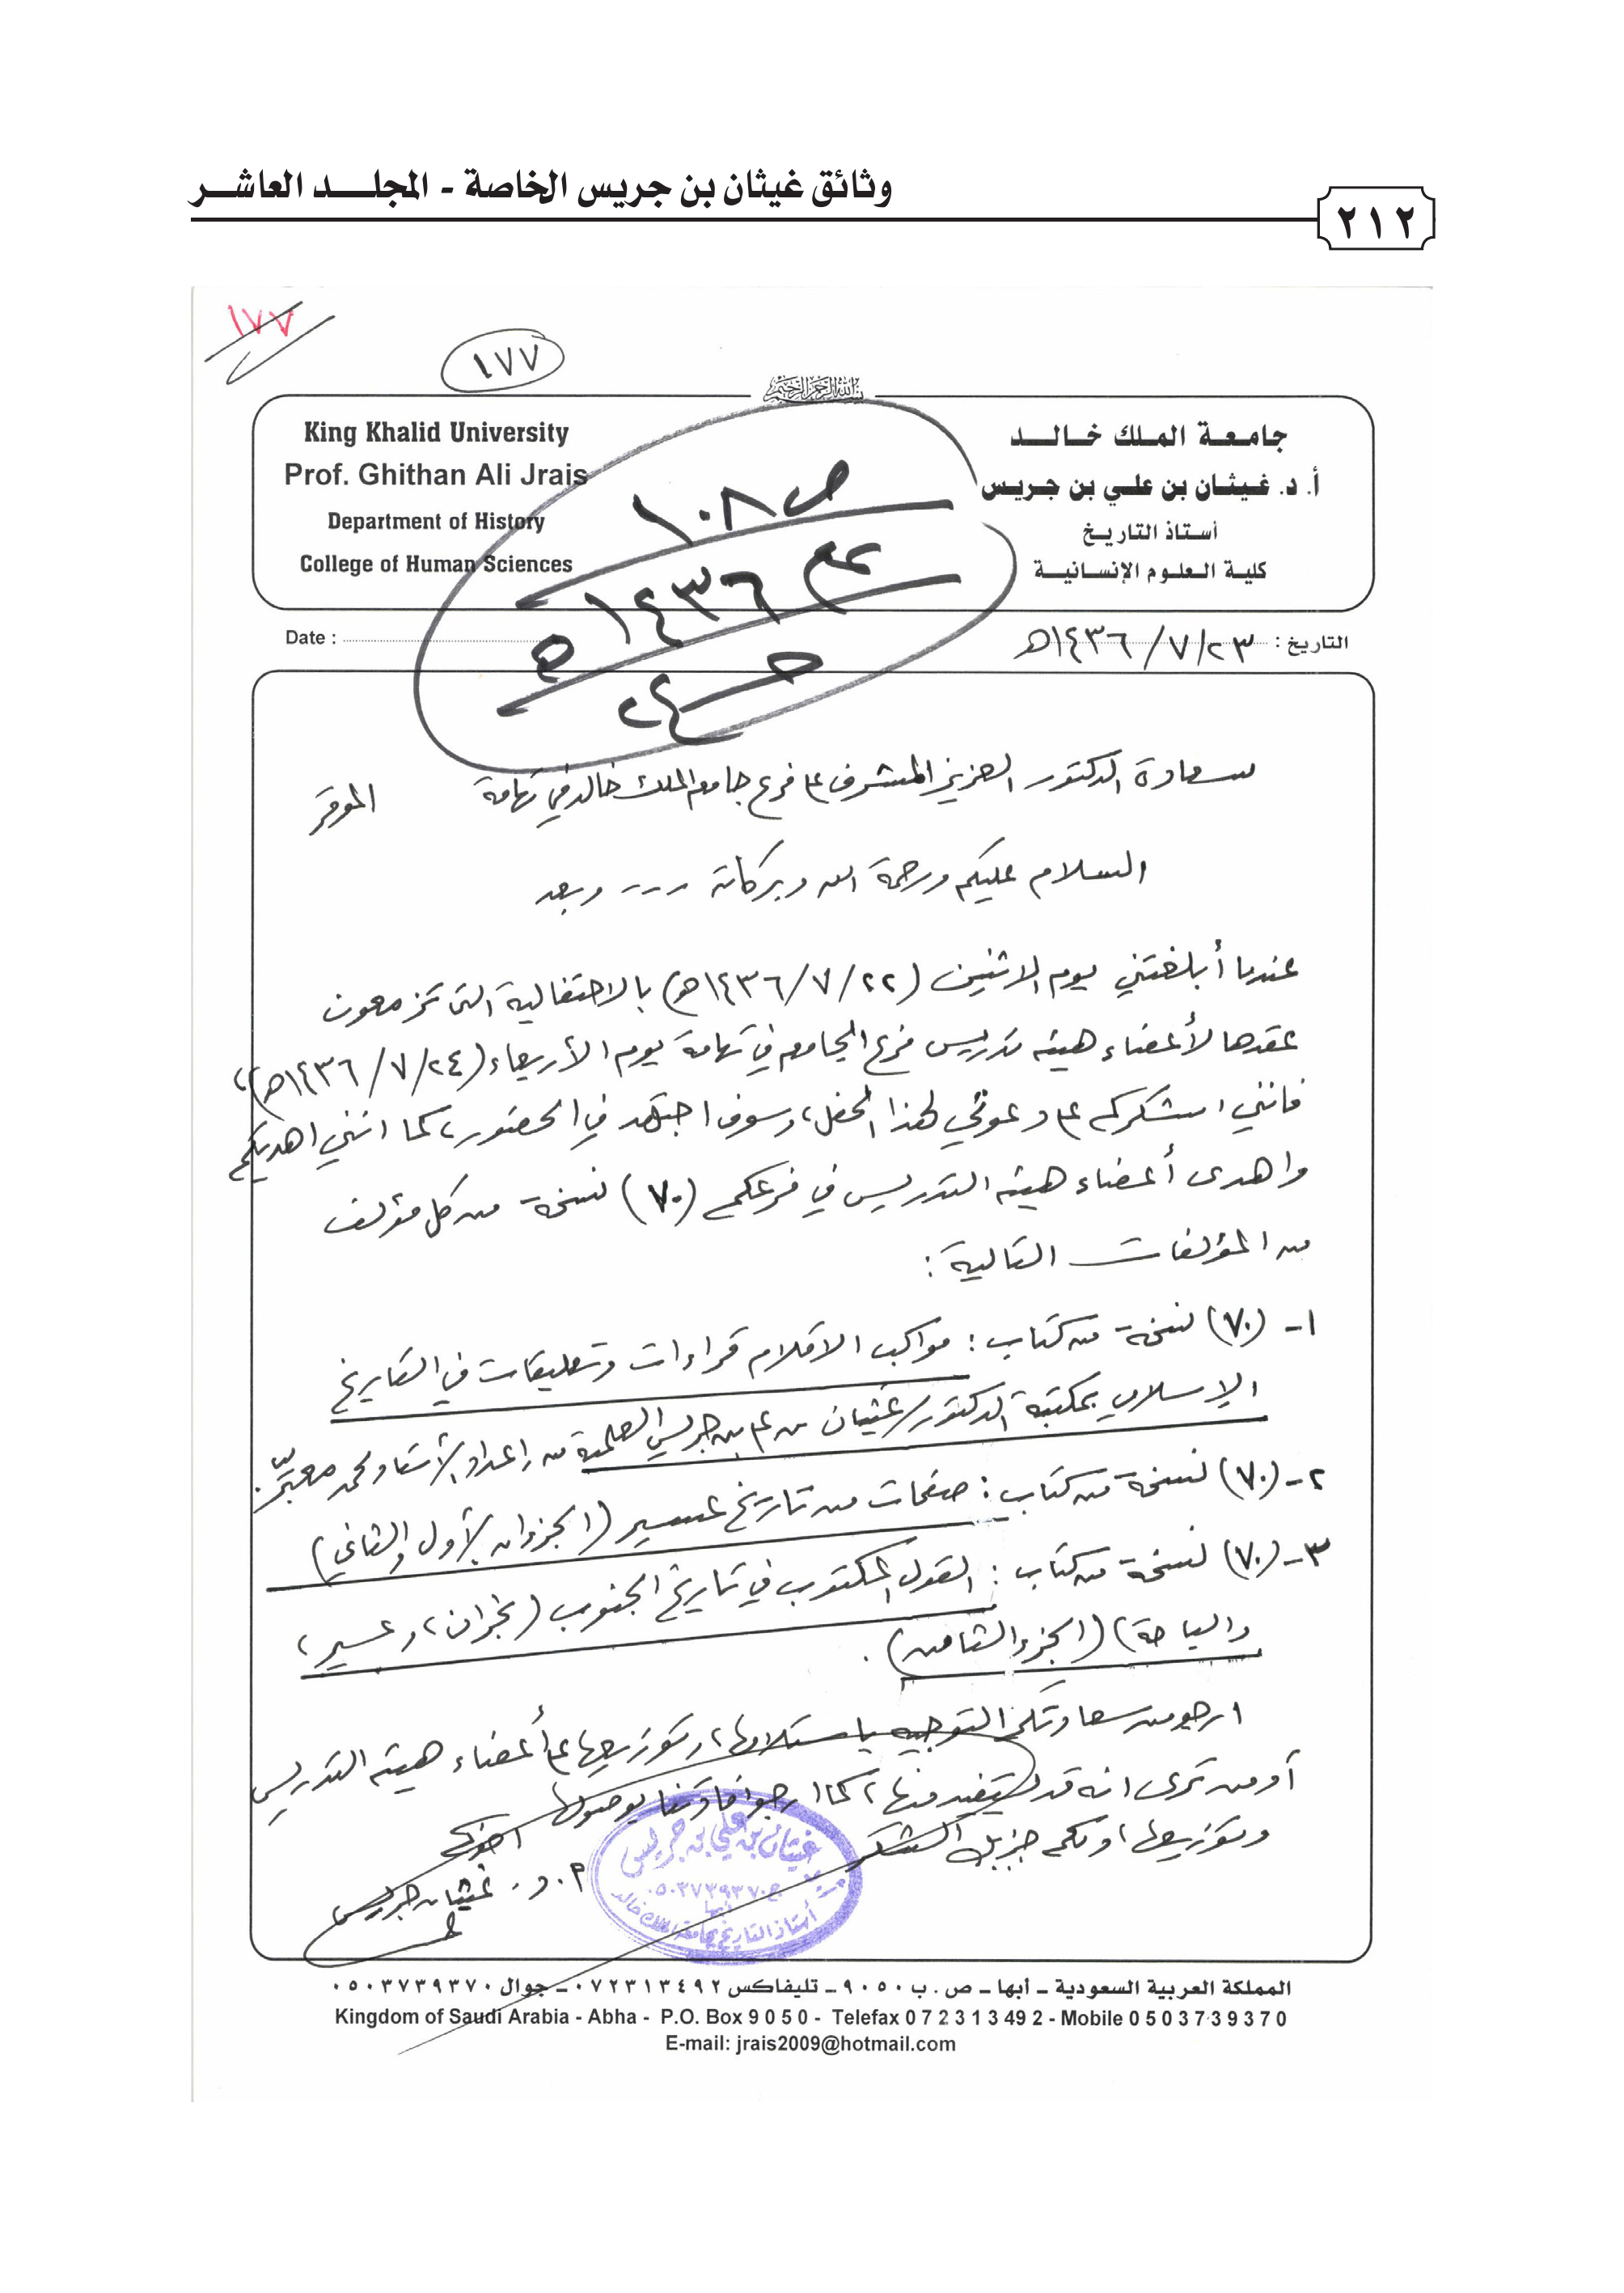 وثائق غيثان بن جريس الخاصة - المجلد العاشر
٢١٢
١٧٧
١٧٧
بسم الله الرحمن الرحيم
King Khalid University
Prof. Ghithan Ali Jrais
Department of History
College of Human Sciences
جامعة الملك خالد
أ. د. غيثان بن علي بن جريس
أستاذ التاريخ
كلية العلوم الإنسانية
ص ١٠٨
١٤٣٦
٢٤
Date :
التاريخ : ٢٣/ ٧/ ١٤٣٦هـ
سعادة الدكتور العزيز المشرف على فرع جامعة الملك خالد في تهامة الموقر
السلام عليكم ورحمة الله وبركاته ---- وبعد
عندما أبلغتني يوم الاثنين (٢٢/ ٧/ ١٤٣٦هـ) بالاحتفالية التي تزمعون
عقدها لأعضاء هيئة تدريس فرع الجامعة في تهامة يوم الأربعاء (٢٤/ ٧/ ١٤٣٦هـ)،
فانني اشكركم على دعوتي لهذا الحفل، وسوف اجتهد في الحضور، كما انني اهديكم
واهدى أعضاء هيئة التدريس في فرعكم (٧٠) نسخة من كل مؤلف
من المؤلفات التالية :
١- (٧٠) نسخة من كتاب : مواكب الاقلام قراءات وتعليقات في التاريخ
الإسلامي بمكتبة الدكتور/ غيثان بن علي بن جريس العلمية من إعداد الأستاذ محمد معبّر.
٢- (٧٠) نسخة من كتاب : صفحات من تاريخ عسير (الجزءان الأول والثاني)
٣- (٧٠) نسخة من كتاب : القول المكتوب في تاريخ الجنوب (نجران، وعسير،
والباحة) (الجزء الثامن) .
ارجو من سعادتكم التوجيه باستلامها، وتوزيعها على أعضاء هيئة التدريس
أو من ترى انه قد يستفيد منها، كما ارجو افادتنا بوصولها
وتوزيعها، ولكم جزيل الشكر
اخوكم
أ. د. غيثان جريس
غيثان بن علي بن جريس
ج ٠٥٠٣٧٣٩٣٧٠
أبها
أستاذ التاريخ بجامعة الملك خالد
المملكة العربية السعودية – أبها – ص . ب ٩٠٥٠ – تليفاكس ٠٧٢٣١٣٤٩٢ – جوال ٠٥٠٣٧٣٩٣٧٠
Kingdom of Saudi Arabia - Abha - P.O. Box 9 0 5 0 - Telefax 0 7 2 3 1 3 4 9 2 - Mobile 0 5 0 3 7 3 9 3 7 0
E-mail: jrais2009@hotmail.com